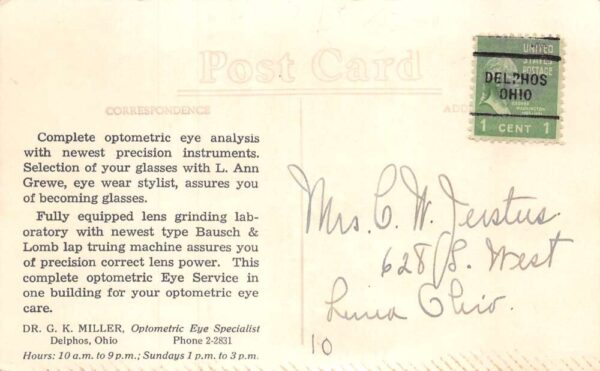 Post Card
CORRESPONDENCE
UNITED
STATES
POSTAGE
DELPHOS
OHIO
GEORGE
WASHINGTON
1 CENT 1
Complete optometric eye analysis
with newest precision instruments.
Selection of your glasses with L. Ann
Grewe, eye wear stylist, assures you
of becoming glasses.
Fully equipped lens grinding lab-
oratory with newest type Bausch &
Lomb lap truing machine assures you
of precision correct lens power. This
complete optometric Eye Service in
one building for your optometric eye
care.
DR. G. K. MILLER, Optometric Eye Specialist
Delphos, Ohio Phone 2-2831
Hours: 10 a.m. to 9 p.m.; Sundays 1 p.m. to 3 p.m.
Mrs. C. W.
628 S. West
Lima Ohio.
10